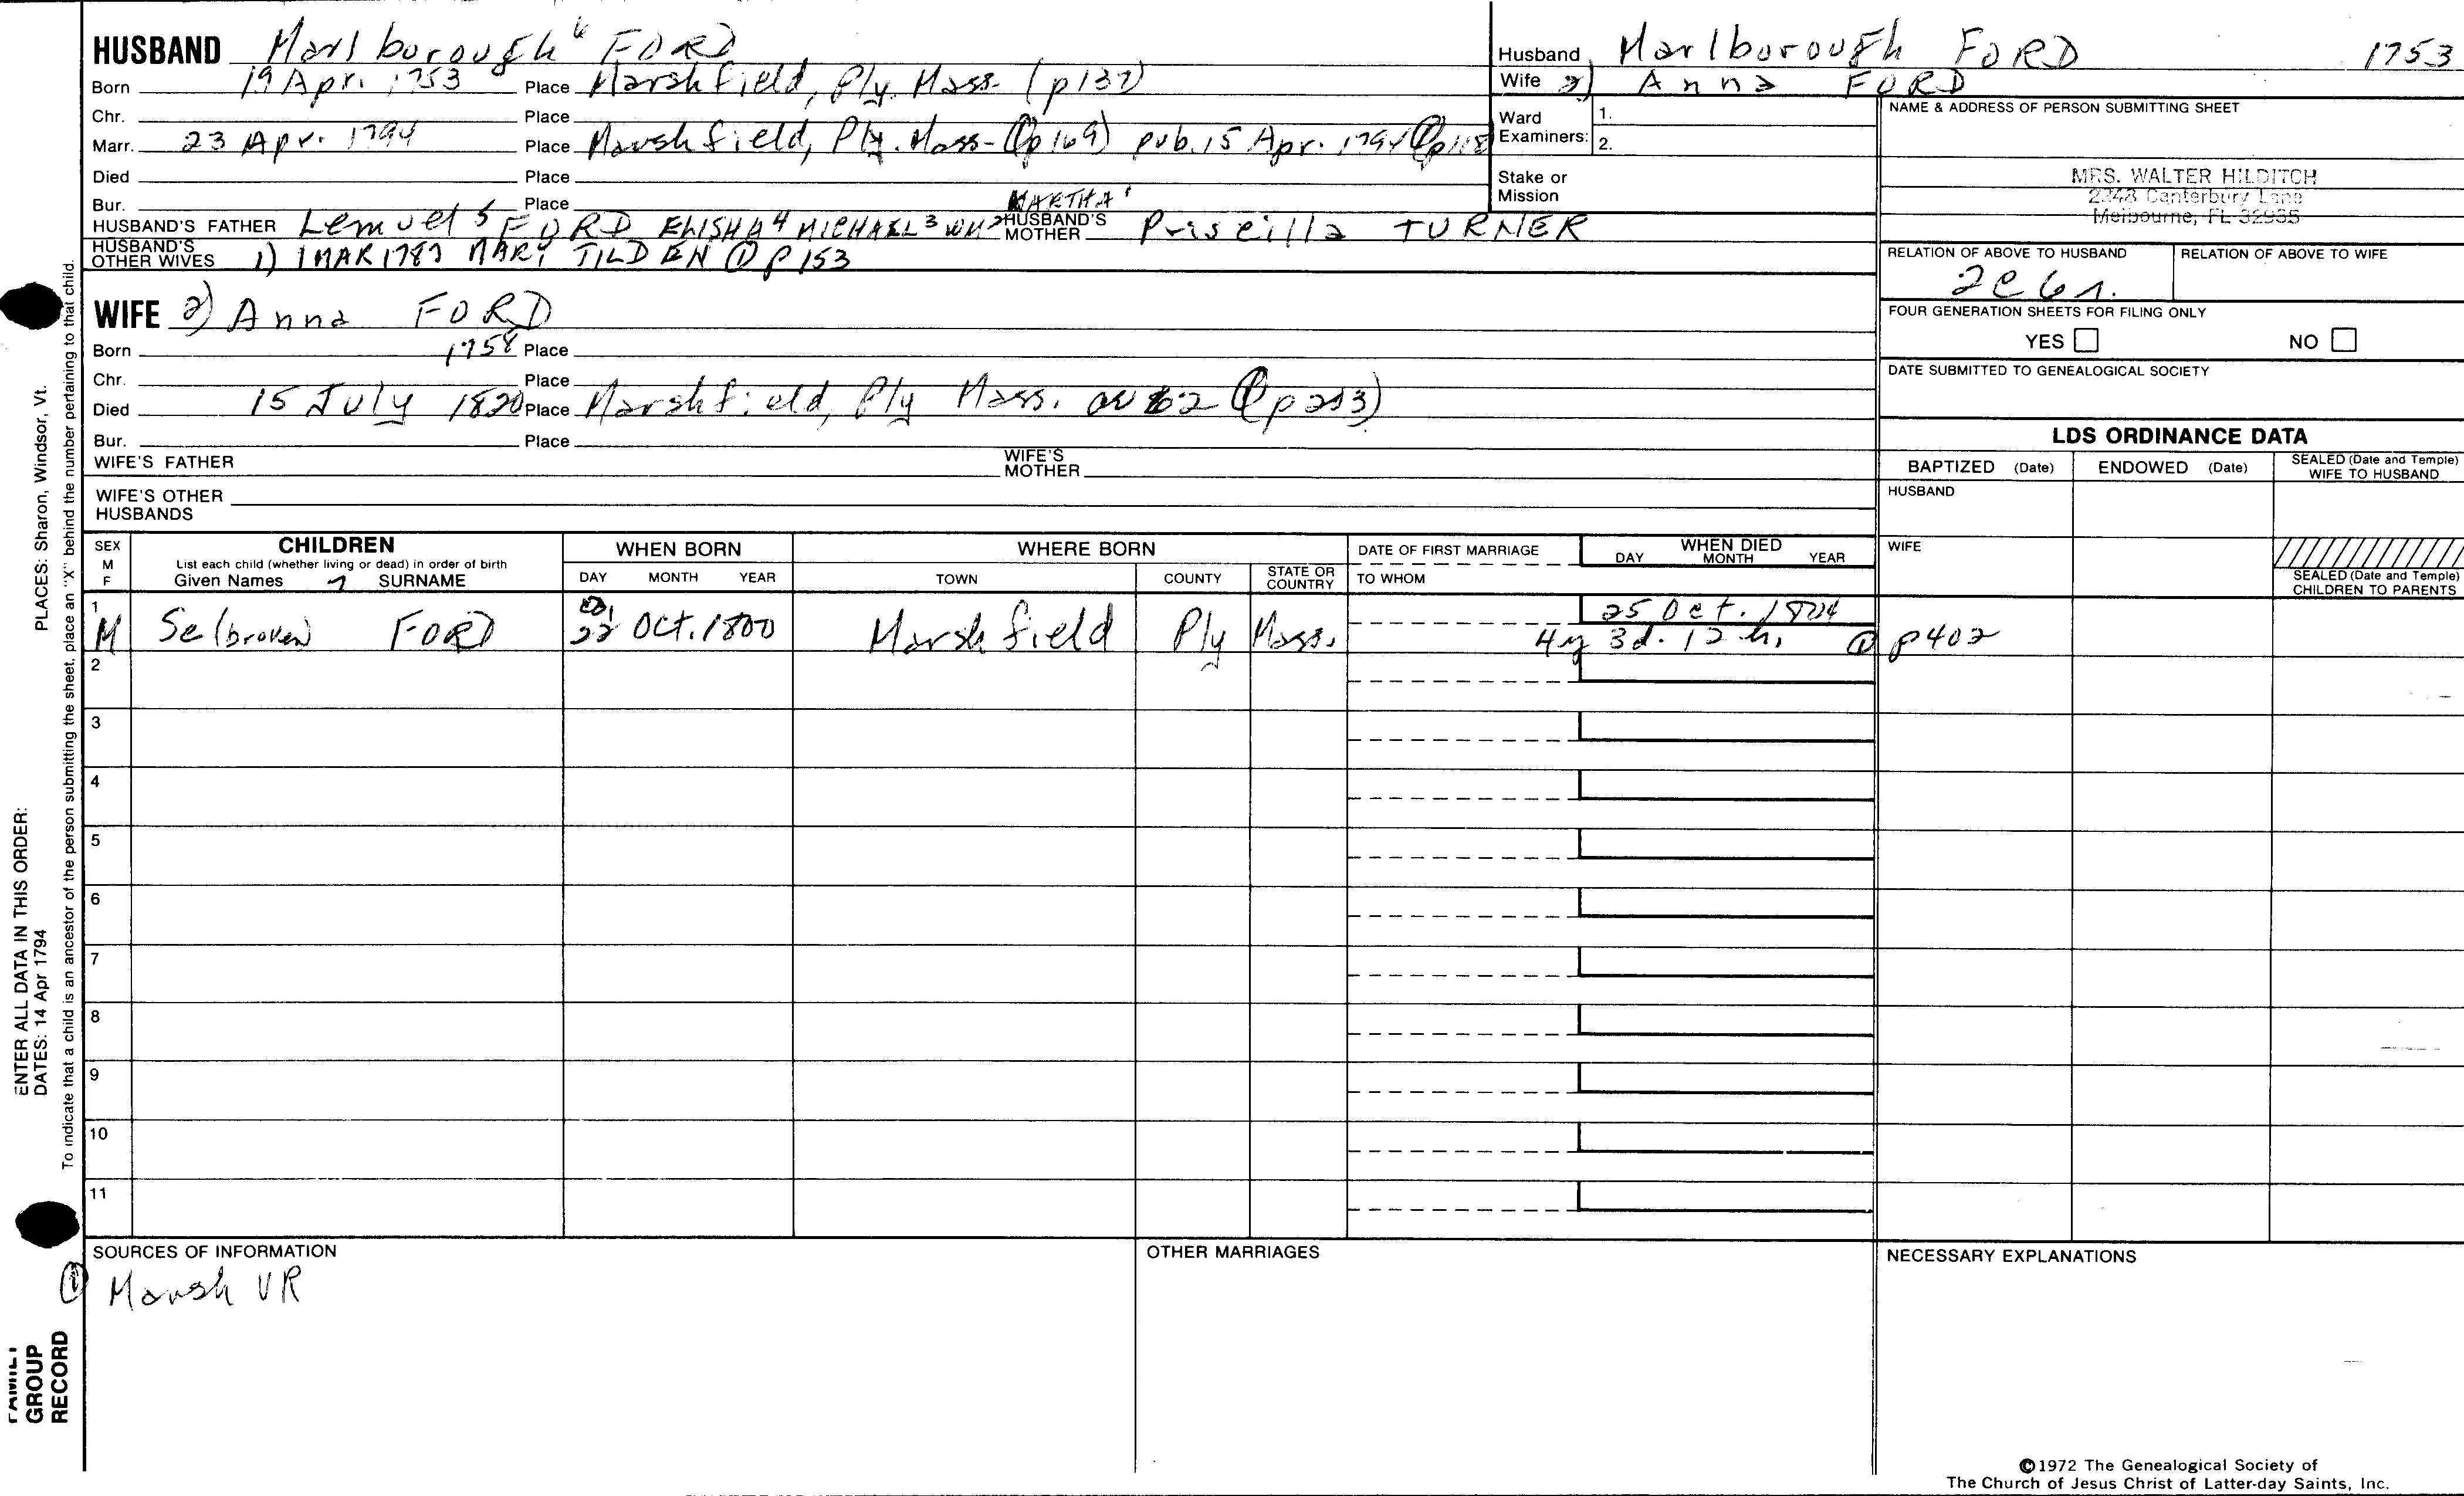 HUSBAND Marlborough 6 FORD
Born 19 Apr. 1753 Place Marshfield, Ply. Mass. (p137)
Chr. Place
Marr. 23 Apr. 1794 Place Marshfield, Ply. Mass- (① p169) pub. 15 Apr. 1794 ① p118
Died Place
Bur. Place
HUSBAND'S FATHER Lemuel 5 FORD ELISHA 4 MICHAEL 3 WM 2 MARTHA 1 HUSBAND'S MOTHER Priscilla TURNER
HUSBAND'S OTHER WIVES 1) 1 MAR 1787 MARY TILDEN ① p153
WIFE 2) Anna FORD
Born 1758 Place
Chr. Place
Died 15 July 1820 Place Marshfield, Ply Mass. 62 (① p)
Bur. Place
WIFE'S FATHER WIFE'S MOTHER
WIFE'S OTHER HUSBANDS
Husband Marlborough FORD 1753
Wife 2) Anna FORD
Ward Examiners: 1.
2.
Stake or Mission
NAME & ADDRESS OF PERSON SUBMITTING SHEET
MRS. WALTER HILDITCH
2248 Canterbury Lane
Melbourne, FL 32935
RELATION OF ABOVE TO HUSBAND RELATION OF ABOVE TO WIFE
2c6r.
FOUR GENERATION SHEETS FOR FILING ONLY
YES NO
DATE SUBMITTED TO GENEALOGICAL SOCIETY
LDS ORDINANCE DATA
BAPTIZED (Date) ENDOWED (Date) SEALED (Date and Temple) WIFE TO HUSBAND
HUSBAND
WIFE
SEALED (Date and Temple) CHILDREN TO PARENTS
SEX M F CHILDREN WHEN BORN WHERE BORN DATE OF FIRST MARRIAGE WHEN DIED
List each child (whether living or dead) in order of birth
Given Names SURNAME DAY MONTH YEAR TOWN COUNTY STATE OR COUNTRY TO WHOM DAY MONTH YEAR
1 M FORD 22 Oct. 1800 Marshfield Ply Mass. 25 Oct. 1804
4y 3d. 12 h. ① p402
2
3
4
5
6
7
8
9
10
11
SOURCES OF INFORMATION
① Marsh VR
OTHER MARRIAGES
NECESSARY EXPLANATIONS
©1972 The Genealogical Society of
The Church of Jesus Christ of Latter-day Saints, Inc.
ENTER ALL DATA IN THIS ORDER:
DATES: 14 Apr 1794 PLACES: Sharon, Windsor, Vt.
To indicate that a child is an ancestor of the person submitting the sheet, place an "X" behind the number pertaining to that child.
FAMILY
GROUP
RECORD